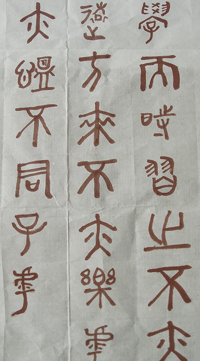 學而時習之不亦
遠方來不亦樂乎
亦慍不同子乎